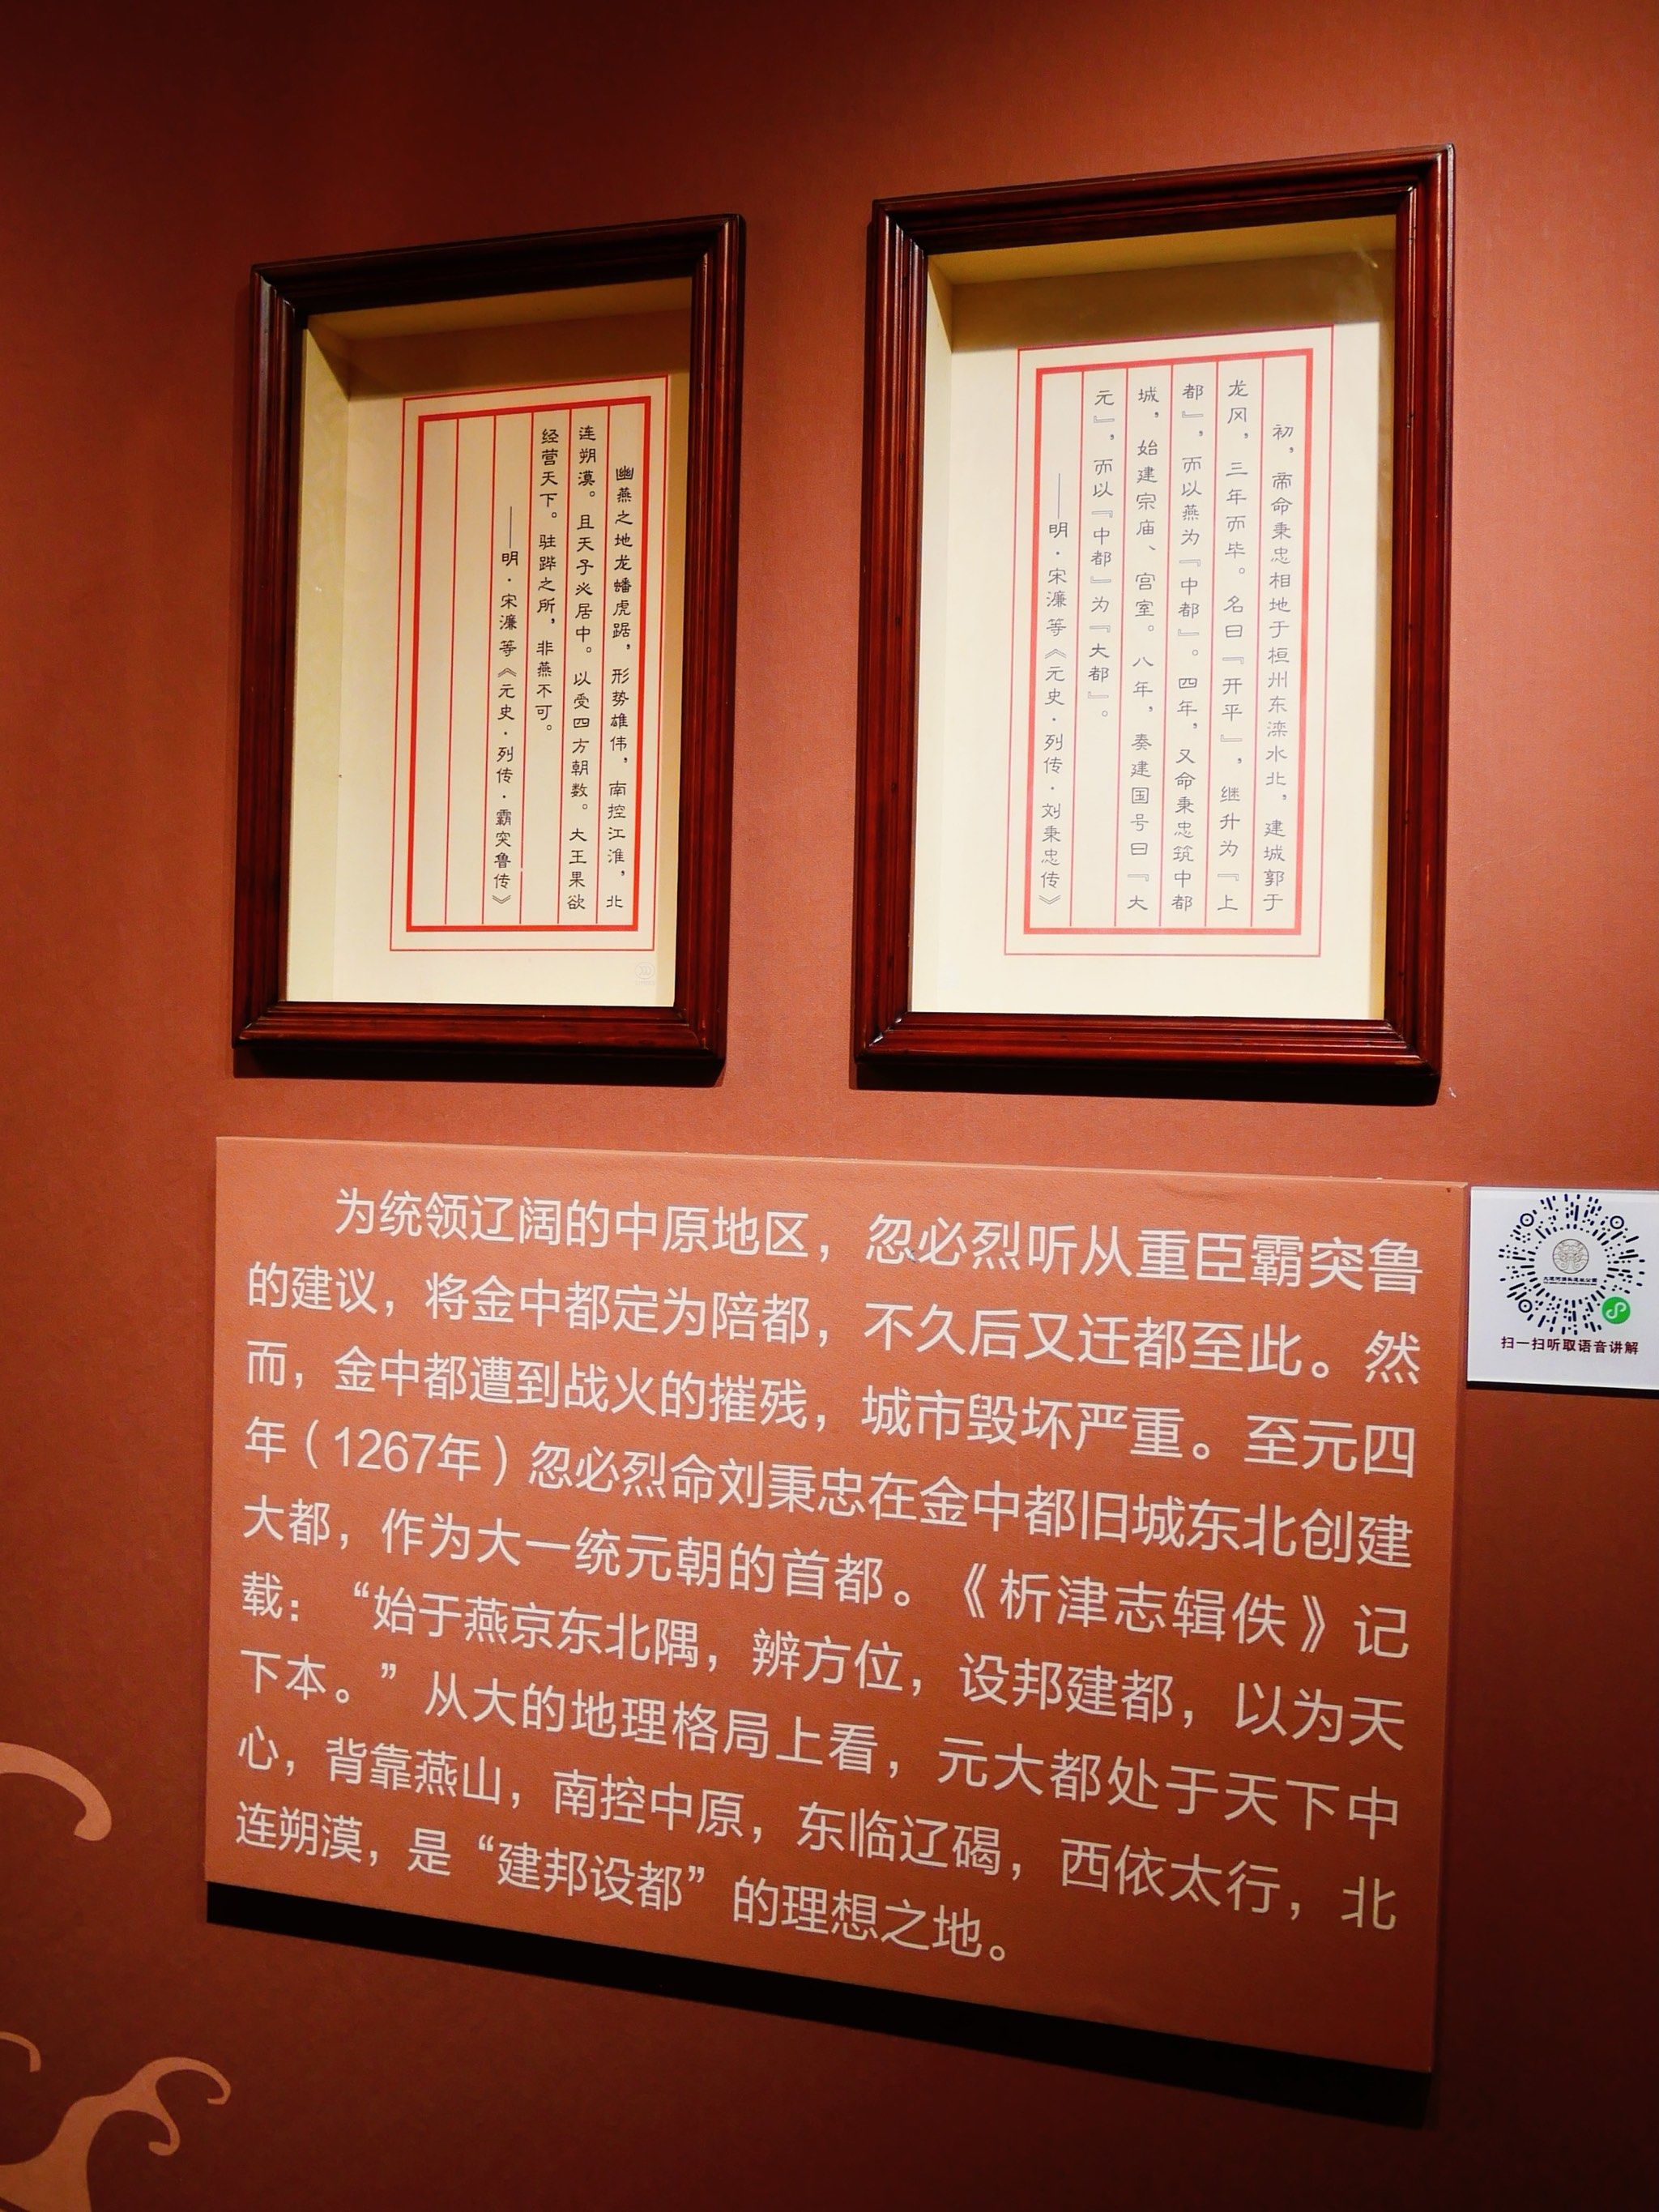 幽燕之地龙蟠虎踞，形势雄伟，南控江淮，北
连朔漠。且天子必居中。以受四方朝数。大王果欲
经营天下。驻跸之所，非燕不可。
——明·宋濂等《元史·列传·霸突鲁传》
初，帝命秉忠相地于桓州东滦水北，建城郭于
龙冈，三年而毕。名曰『开平』，继升为『上
都』，而以燕为『中都』。四年，又命秉忠筑中都
城，始建宗庙、宫室。八年，奏建国号曰『大
元』，而以『中都』为『大都』。
——明·宋濂等《元史·列传·刘秉忠传》
为统领辽阔的中原地区，忽必烈听从重臣霸突鲁
的建议，将金中都定为陪都，不久后又迁都至此。然
而，金中都遭到战火的摧残，城市毁坏严重。至元四
年（1267年）忽必烈命刘秉忠在金中都旧城东北创建
大都，作为大一统元朝的首都。《析津志辑佚》记
载：“始于燕京东北隅，辨方位，设邦建都，以为天
下本。”从大的地理格局上看，元大都处于天下中
心，背靠燕山，南控中原，东临辽碣，西依太行，北
连朔漠，是“建邦设都”的理想之地。
扫一扫听取语音讲解